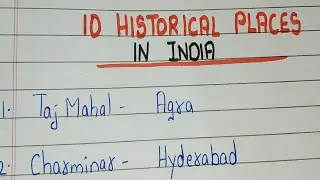 10 HISTORICAL PLACES
IN INDIA
1. Taj Mahal - Agra
2. Charminar - Hyderabad